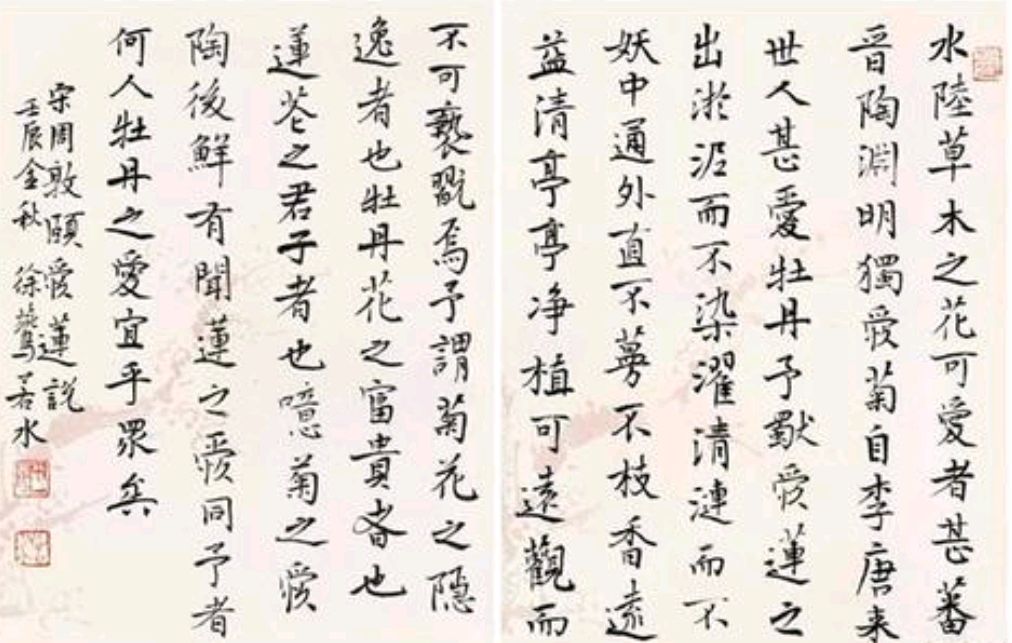 水陸草木之花可愛者甚蕃
晋陶淵明獨愛菊自李唐来
世人甚愛牡丹予愛蓮之
出淤泥而不染濯清漣而不
妖中通外直不蔓不枝香遠
益清亭亭净植可遠觀而
不可褻翫焉予謂菊花之隱
逸者也牡丹花之富貴者也
蓮花之君子者也噫菊之愛
陶後鮮有聞蓮之愛同予者
何人牡丹之愛宜乎眾矣
宋周敦頤愛蓮説
壬辰金秋 徐若水